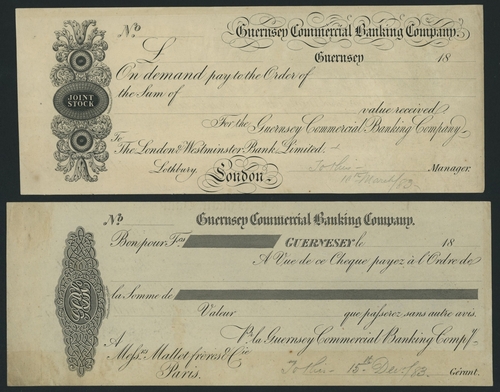 No
Guernsey Commercial Banking Company.
£
Guernsey 18
On demand pay to the Order of
the Sum of
JOINT
STOCK
value received
For the Guernsey Commercial Banking Company
To
The London & Westminster Bank Limited.
Lothbury. London. Manager.
11th March/83
No
Guernsey Commercial Banking Company.
Bon pour F.cs GUERNESEY le 18
A Vue de ce Cheque payez à l'Ordre de
la Somme de
Valeur que passerez sans autre avis.
Pr. la Guernsey Commercial Banking Compy.
A
Messrs. Mallet frères & Cie.
Paris.
15th Dec/83. Gérant.